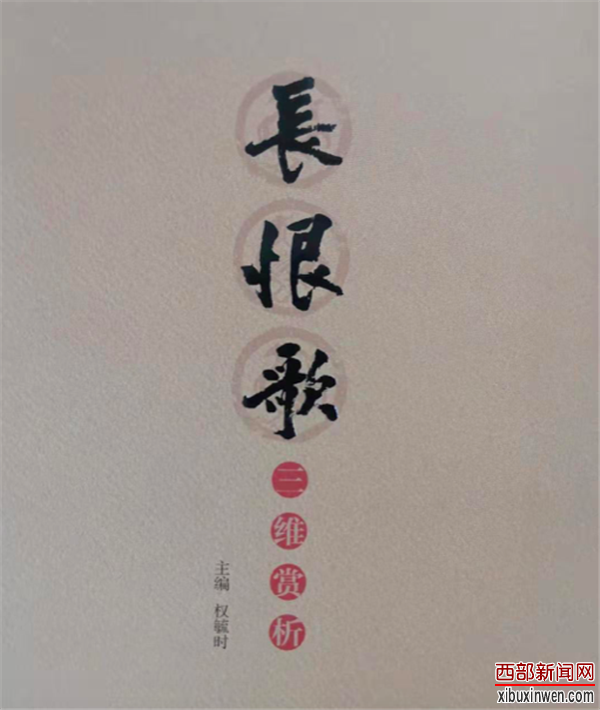 長恨歌
三维赏析
主编 权毓时
西部新闻网
xibuxinwen.com